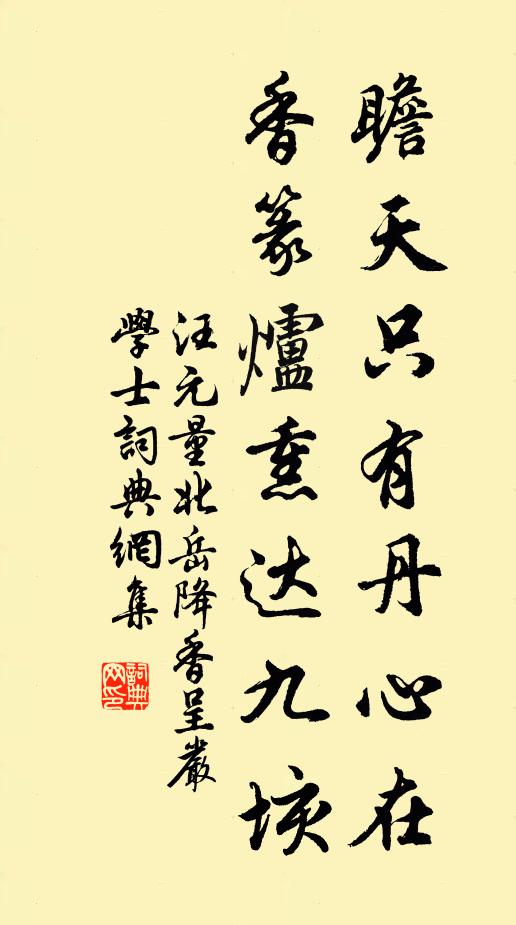 瞻天只有丹心在
香篆爐熏达九垓
汪元量北岳降香呈嚴
學士詞典網集
詞典网印